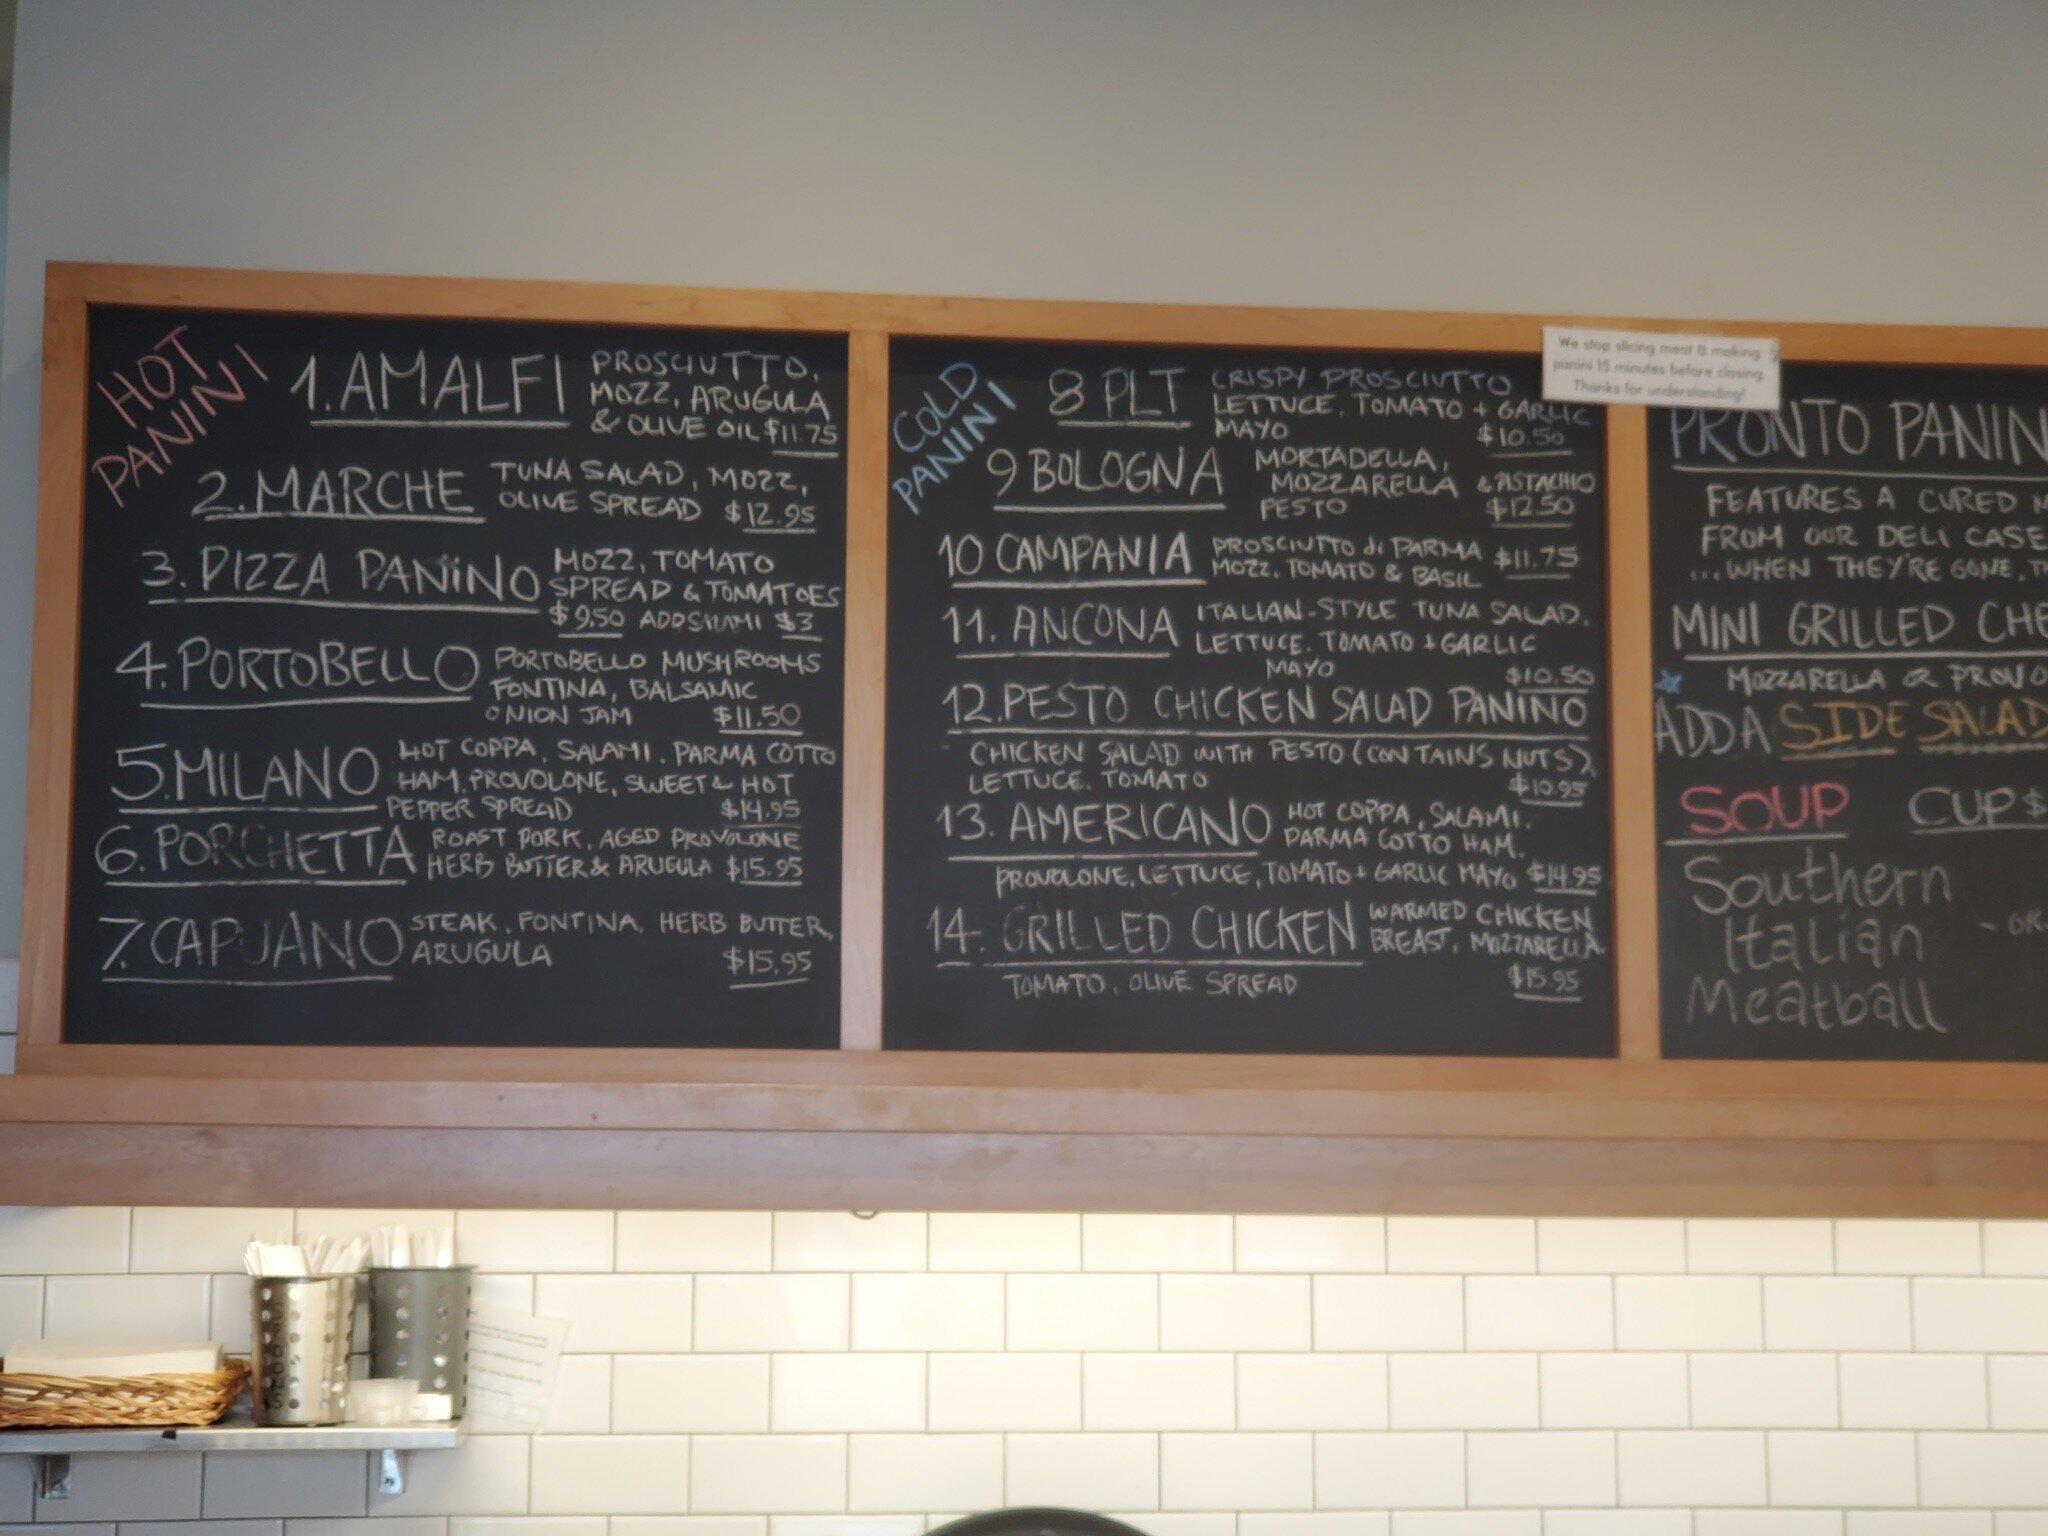 HOT
PANINI
1. AMALFI
PROSCIUTTO,
MOZZ, ARUGULA
& OLIVE OIL $11.75
2. MARCHE
TUNA SALAD, MOZZ,
OLIVE SPREAD $12.95
3. PIZZA PANINO
MOZZ, TOMATO
SPREAD & TOMATOES
$9.50 ADD SALAMI $3
4. PORTOBELLO
PORTOBELLO MUSHROOMS
FONTINA, BALSAMIC
ONION JAM $11.50
5. MILANO
HOT COPPA, SALAMI, PARMA COTTO
HAM, PROVOLONE, SWEET & HOT
PEPPER SPREAD $14.95
6. PORCHETTA
ROAST PORK, AGED PROVOLONE
HERB BUTTER & ARUGULA $15.95
7. CAPUANO
STEAK, FONTINA, HERB BUTTER,
ARUGULA $15.95
COLD
PANINI
8 PLT
CRISPY PROSCIUTTO
LETTUCE, TOMATO + GARLIC
MAYO $10.50
9 BOLOGNA
MORTADELLA,
MOZZARELLA & PISTACHIO
PESTO $12.50
10 CAMPANIA
PROSCIUTTO di PARMA $11.75
MOZZ, TOMATO & BASIL
11. ANCONA
ITALIAN-STYLE TUNA SALAD,
LETTUCE, TOMATO + GARLIC
MAYO $10.50
12. PESTO CHICKEN SALAD PANINO
CHICKEN SALAD WITH PESTO (CONTAINS NUTS),
LETTUCE, TOMATO $10.95
13. AMERICANO
HOT COPPA, SALAMI,
PARMA COTTO HAM,
PROVOLONE, LETTUCE, TOMATO + GARLIC MAYO $14.95
14. GRILLED CHICKEN
WARMED CHICKEN
BREAST, MOZZARELLA
TOMATO, OLIVE SPREAD $15.95
We stop slicing meat & making
panini 15 minutes before closing.
Thanks for understanding!
PRONTO PANIN
FEATURES A CURED M
FROM OUR DELI CASE
...WHEN THEY'RE GONE, T
MINI GRILLED CHE
MOZZARELLA OR PROVO
ADD A SIDE SALAD
SOUP CUP $
Southern
Italian - GR
Meatball